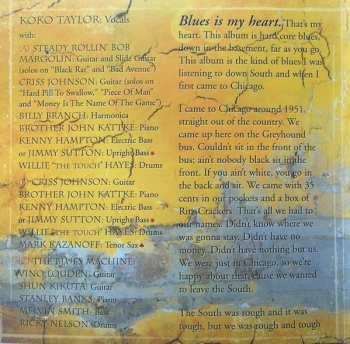 KOKO TAYLOR: Vocals
with:
STEADY ROLLIN' BOB
MARGOLIN: Guitar and Slide Guitar
(solos on "Black Rat" and "Bad Avenue")
CRISS JOHNSON: Guitar (solos on
"Hard Pill To Swallow," "Piece Of Man"
and "Money Is The Name Of The Game")
BILLY BRANCH: Harmonica
BROTHER JOHN KATTKE: Piano
KENNY HAMPTON: Electric Bass
or JIMMY SUTTON: Upright Bass
WILLIE "THE TOUCH" HAYES: Drums
CRISS JOHNSON: Guitar
BROTHER JOHN KATTKE: Piano
KENNY HAMPTON: Electric Bass
or JIMMY SUTTON: Upright Bass
WILLIE "THE TOUCH" HAYES: Drums
MARK KAZANOFF: Tenor Sax
THE BLUES MACHINE:
VINO LOUDEN: Guitar
SHUN KIKUTA: Guitar
STANLEY BANKS: Piano
MELVIN SMITH: Bass
RICKY NELSON: Drums
Blues is my heart. That's my
heart. This album is hard core blues,
down in the basement, far as you go.
This album is the kind of blues I was
listening to down South and when I
first came to Chicago.
I came to Chicago around 1951,
straight out of the country. We
came up here on the Greyhound
bus. Couldn't sit in the front of the
bus; ain't nobody black sit in the
front. If you ain't white, you go in
the back and air. We came with 35
cents in our pockets and a box of
Ritz Crackers. That's all we had to
our names. Didn't know where we
was gonna stay. Didn't have no
money. Didn't have nothing but us.
We were just in Chicago, so we're
happy about that, cause we wanted
to leave the South.
The South was rough and it was
rough, but we was rough and tough